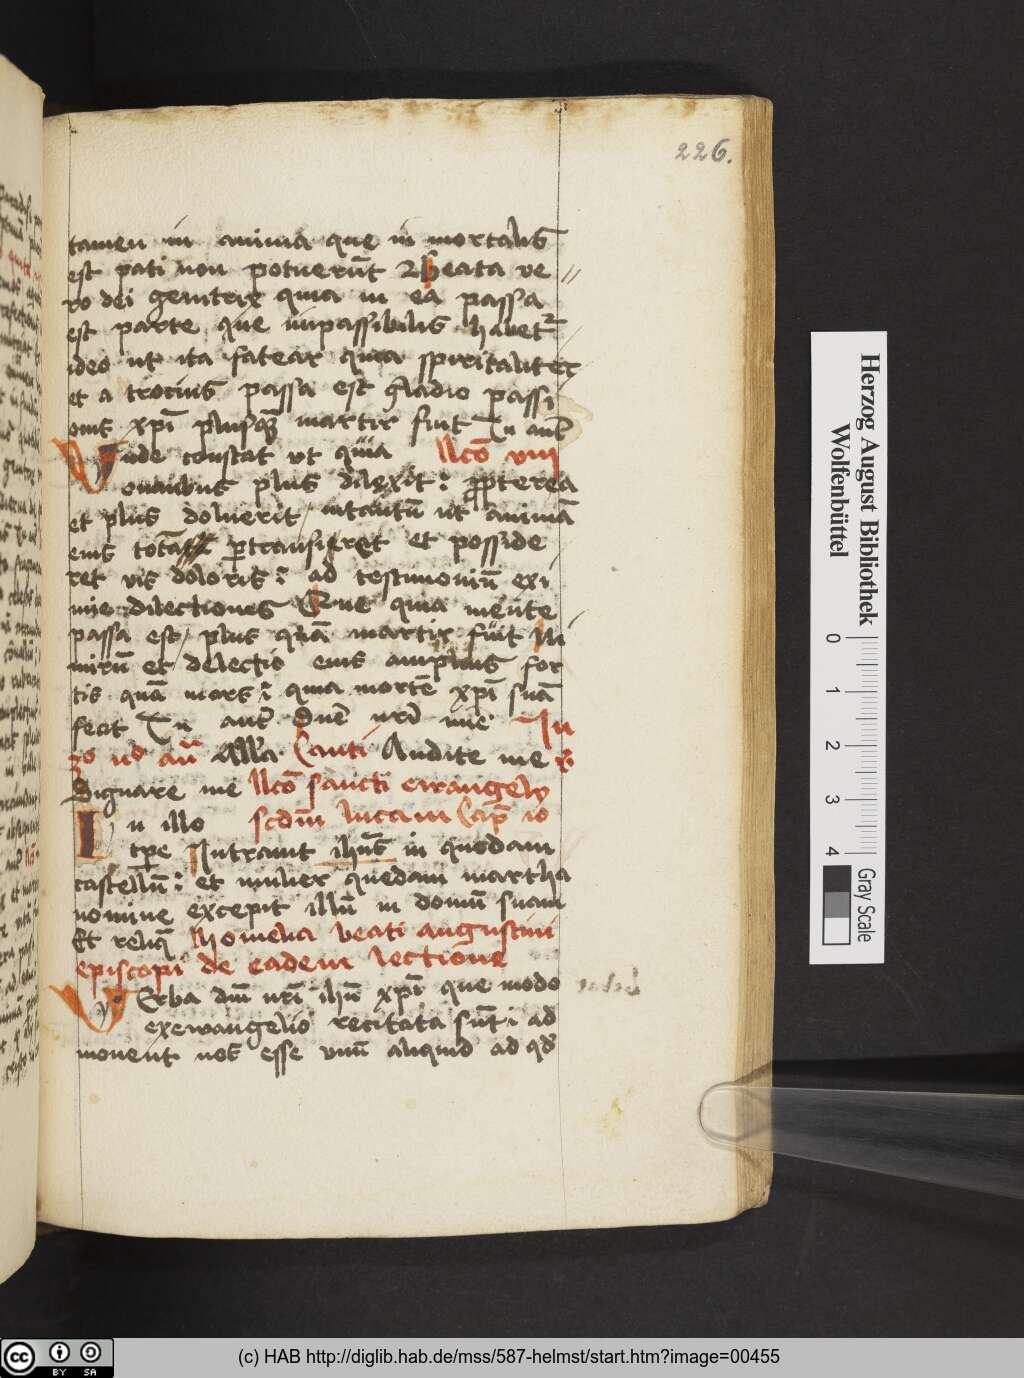 226.
tamen in anima que in mortalis
est pati non potuerūt Beata ve
ro dei genitrix quia in ea passa
est parte que inpassibilis habet̄
ideo ut ita fatear quia spiritaliter
et a trocius passa est gladio passi
onis xpī plusq̄ martir fuit Tu aut̄
Unde constat ut quia llcō viii
omnibus plus dilexit: ꝓpterea
et plus doluerit intantū ut animā
eius totā ꝑtransiret et posside
ret vis doloris: ad testimoniū exi
mie dilectiones Que quia mente
passa est plus quā martir fuit Ni
mirū et delectio eius amplius for
tis quā mors: quia mortē xpī suā
fecit Tu aut̄ Dn̄e nr̄i mie In
ad an̄ Alla Canti Audite me
Dignare me llcō sancti ewangely
In illo scdm̄ lucam Cap̄ io
tp̄e Intrauit ihūs in quodam
castellū: et mulier quedam martha
nomine excepit illū in domū suam
Et reliq̄ Homelia beati augustini
episcopi de eadem lectione
Verba dm̄ nr̄i ihū xpī que modo
exewangelio recitata sūt: ad
monent nos esse vnū aliquid ad qd̄
Herzog August Bibliothek
Wolfenbüttel
0 1 2 3 4
Gray Scale
cc BY SA
(c) HAB http://diglib.hab.de/mss/587-helmst/start.htm?image=00455